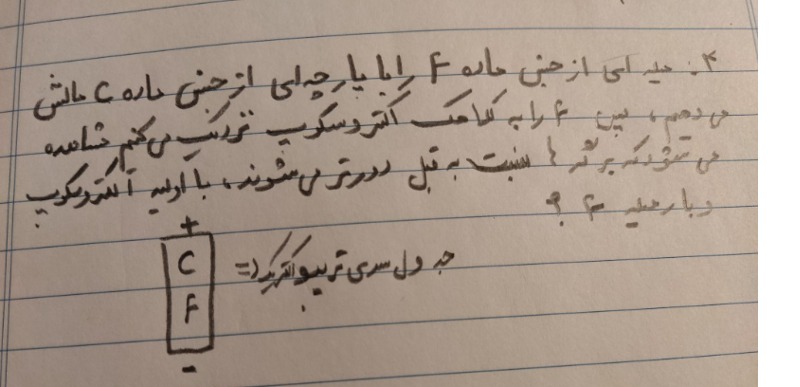 ۴. میله ای از جنس ماده F را با پارچه ای از جنس ماده C مالش
می دهیم، سپس F را به کلاهک الکتروسکوپ نزدیک می کنیم مشاهده
می شود که برگه ها نسبت به قبل دورتر می شوند، بار اولیه الکتروسکوپ
و بار میله F ؟
جدول سری تریبوالکتریک =>
+
C
F
-